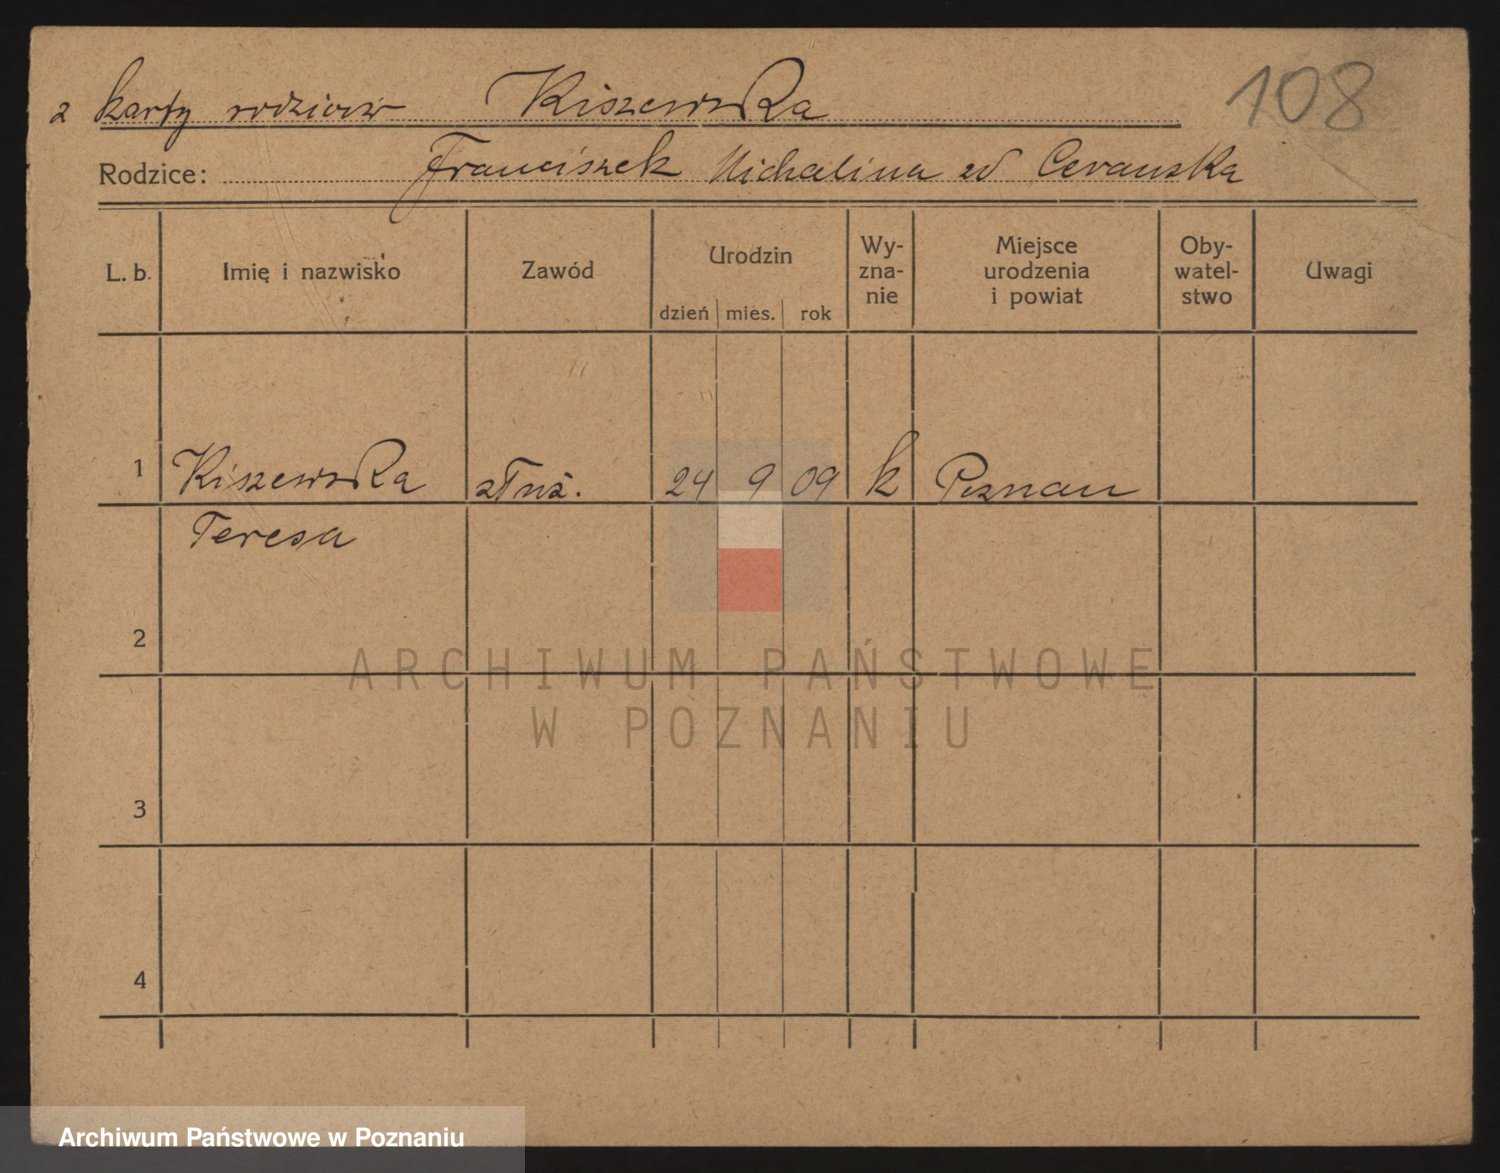 z karty rodziców Kiszewska 108
Rodzice: Franciszek Michalina zd Cerauska
L. b. Imię i nazwisko Zawód Urodzin dzień mies. rok Wy-zna-nie Miejsce urodzenia i powiat Oby-watel-stwo Uwagi
1 Kiszewska 24 9 09 k Poznan
Teresa
2
3
4
ARCHIWUM PAŃSTWOWE
W POZNANIU
Archiwum Państwowe w Poznaniu